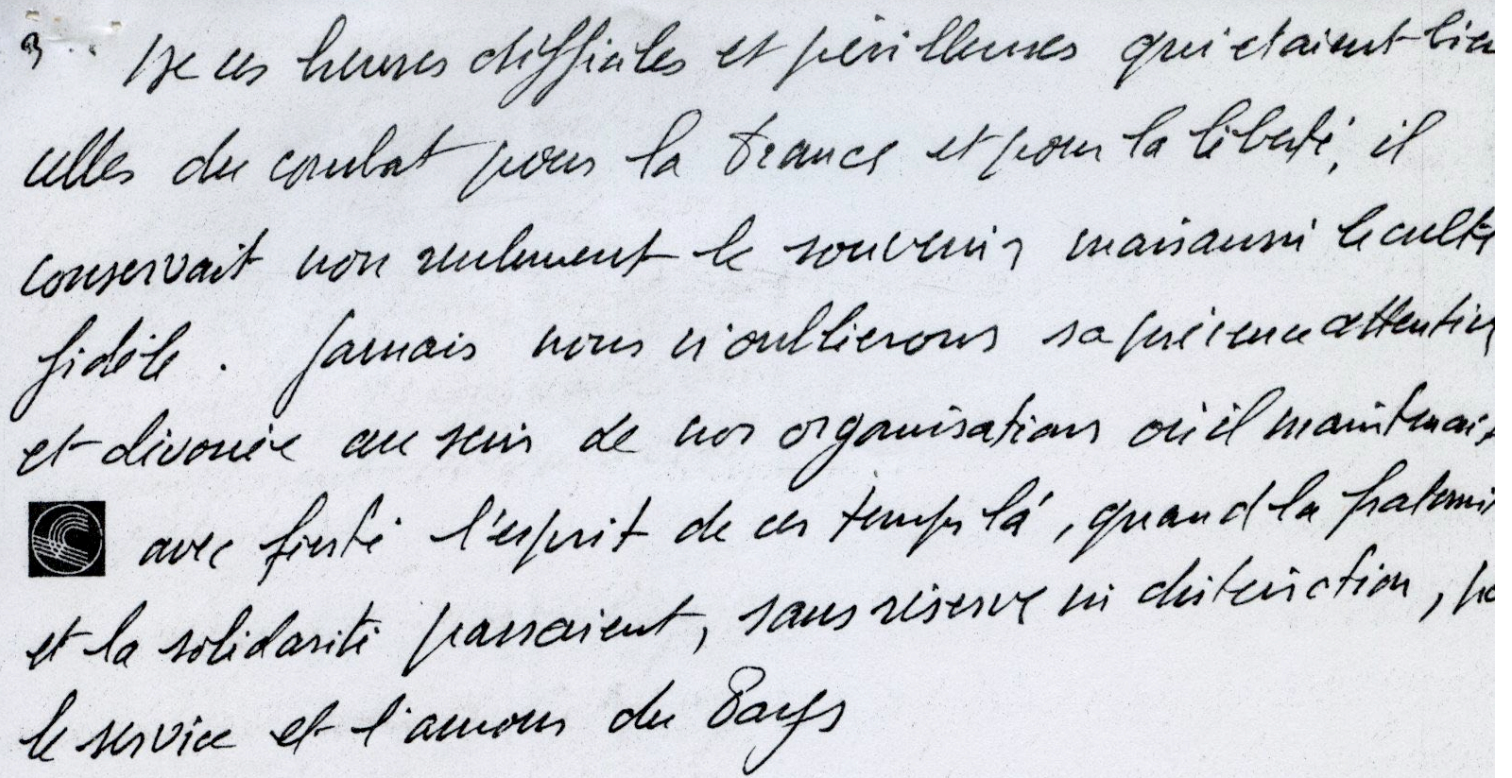 3. De ces heures difficiles et périlleuses qui étaient bien
celles du combat pour la France et pour la liberté, il
conservait non seulement le souvenir mais aussi le culte
fidèle. Jamais nous n'oublierons sa présence attentive
et dévouée au sein de nos organisations où il maintenait
avec fierté l'esprit de ces temps là, quand la fraternit
et la solidarité passaient, sans réserve ni distinction, pa
le service et l'amour du Pays